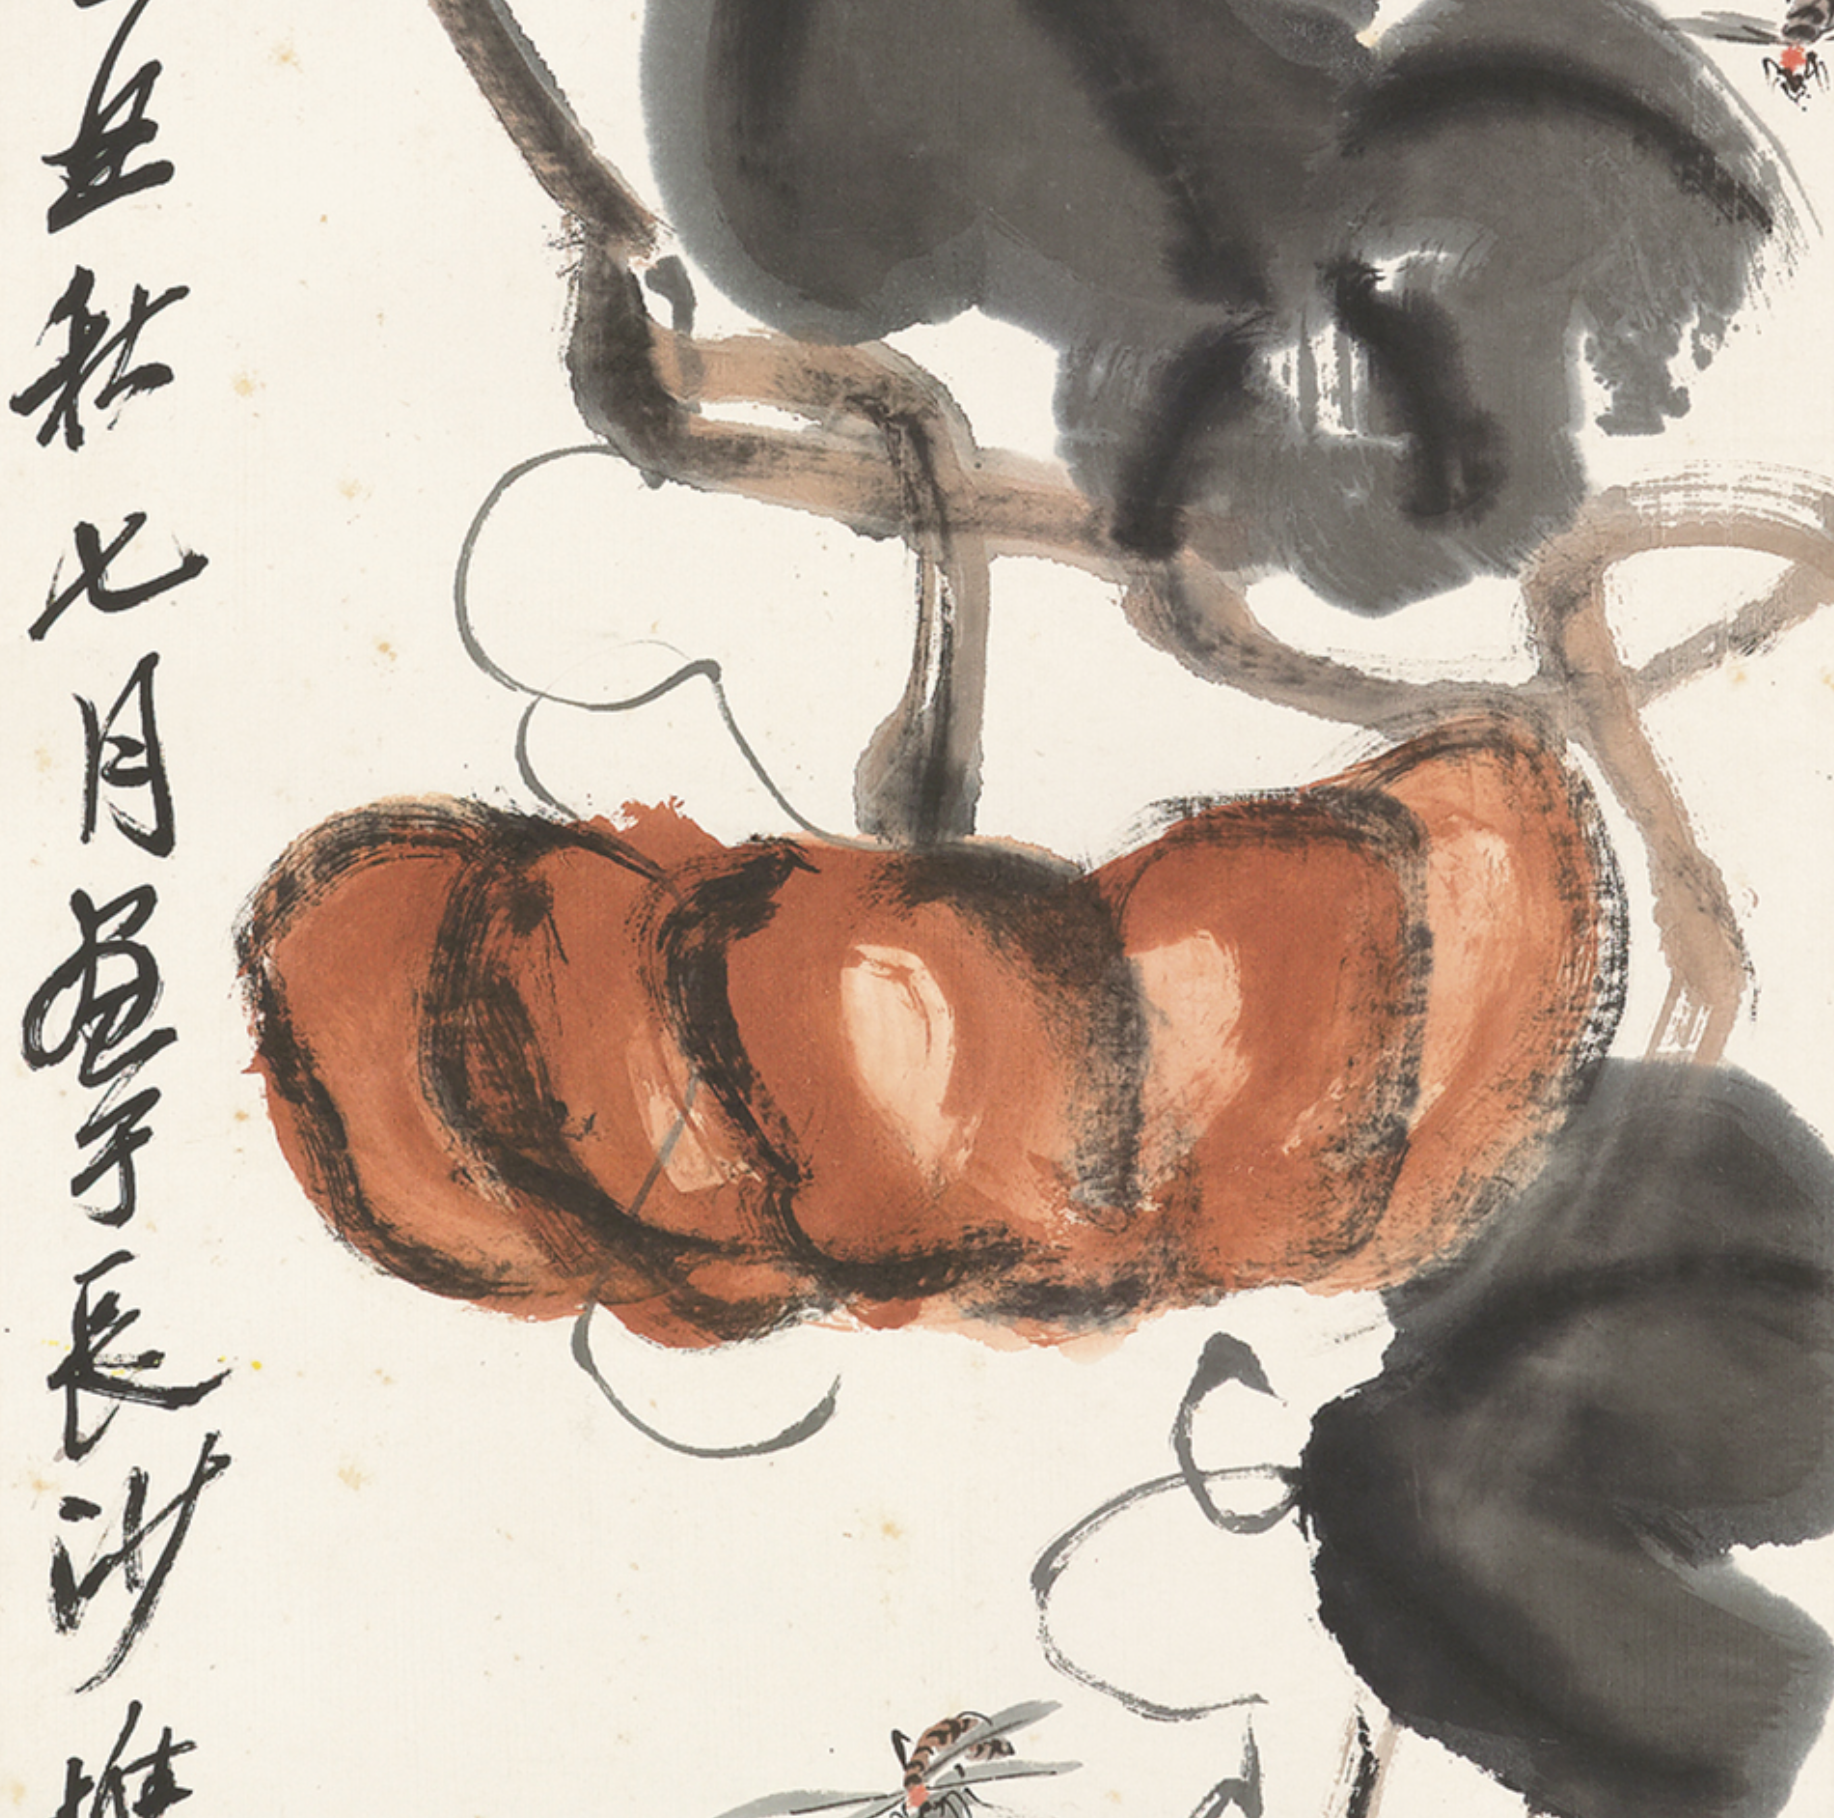 丑秋七月畫于長沙